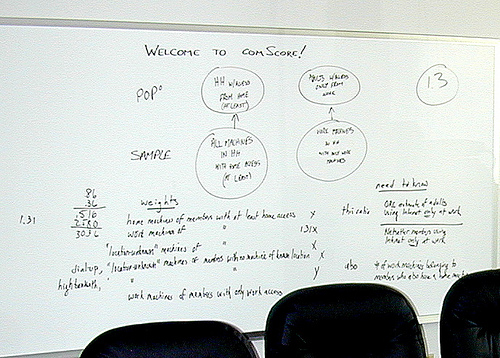 WELCOME TO COMSCORE!
POP:
HH W/ACCESS
FROM HOME
(AT LEAST)
ADULTS W/ACCESS
ONLY FROM
WORK
1.3
SAMPLE
ALL MACHINES
IN HH
WITH HOME ACCESS
(AT LEAST)
WORK MACHINES
WITH ONLY WORK
MACHINES
need to know
86
.36
516
2580
3096
1.31
weights
home machines of members with at least home access X
work machines of " 1.31X
"location-unknown" machines of " X
dialup, "location-unknown" machines of members with no machine of known location X
high bandwidth, " " y
work machines of members with only work access
this ratio
GRE estimate of adults
using Internet only at work
NetRater members using
Internet only at work
also
# of work machines belonging to
members who also have a home machine